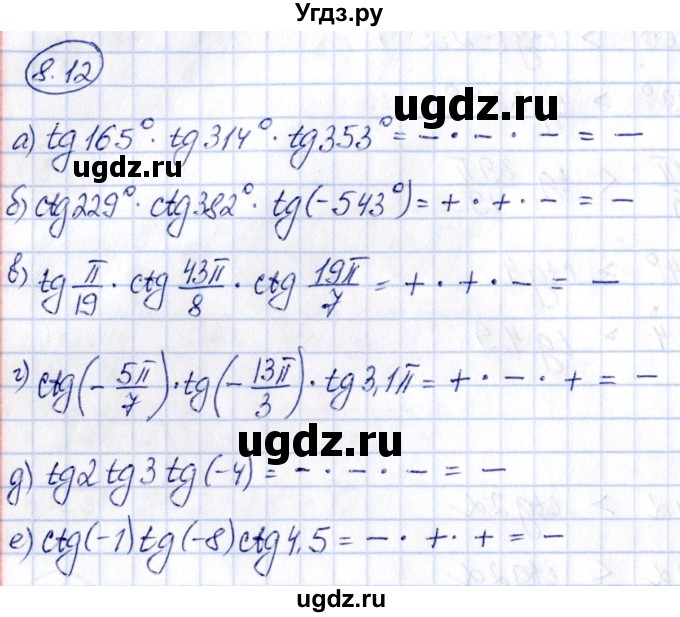 Угдз.ру
8.12
ugdz.ru
а) tg 165° · tg 314° · tg 353° = − · − · − = −
ugdz.ru
б) ctg 229° · ctg 382° · tg (−543°) = + · + · − = −
в) tg π/19 · ctg 43π/8 · ctg 19π/7 = + · + · − = −
г) ctg (−5π/7) · tg (−13π/3) · tg 3,1π = + · − · + = −
ugdz.ru
ugdz.ru
д) tg 2 tg 3 tg (−4) = − · − · − = −
е) ctg (−1) tg (−8) ctg 4,5 = − · + · + = −
ugdz.ru